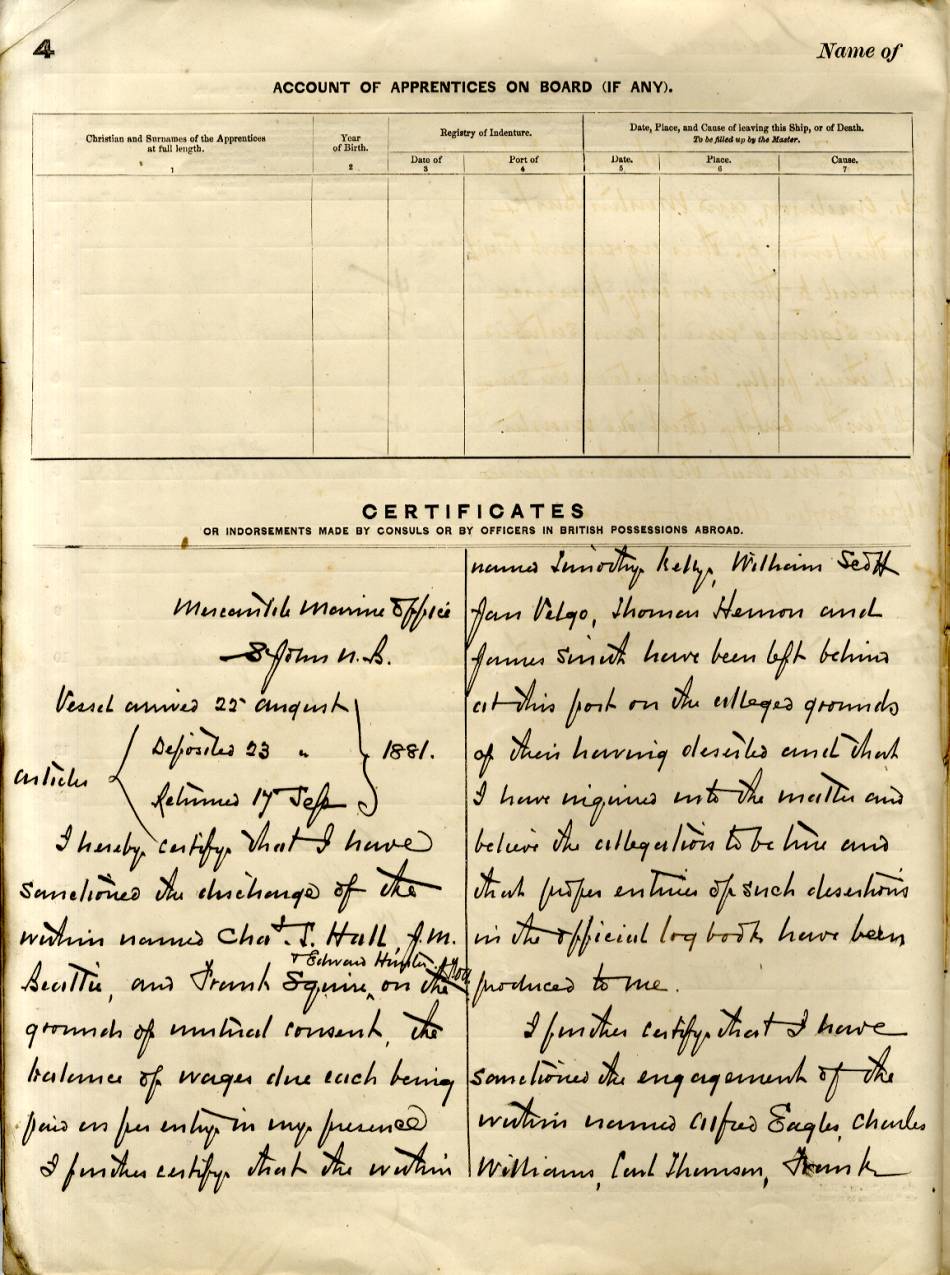 4
Name of
ACCOUNT OF APPRENTICES ON BOARD (IF ANY).
Christian and Surnames of the Apprentices
at full length.
1
Year
of Birth.
2
Registry of Indenture.
Date of
3
Port of
4
Date, Place, and Cause of leaving this Ship, or of Death.
To be filled up by the Master.
Date.
5
Place.
6
Cause.
7
CERTIFICATES
OR INDORSEMENTS MADE BY CONSULS OR BY OFFICERS IN BRITISH POSSESSIONS ABROAD.
Mercantile Marine Office
St John N.B.
Vessel arrived 22 august
articles
Deposited 23 "
1881.
Returned 17 Sep
I hereby certify that I have
sanctioned the discharge of the
within named Chas. S. Hall, J.M.
& Edward Hunter
Beattie, and Frank Squire, on the
grounds of mutual consent, the
balance of wages due each being
paid as per entry in my presence
I further certify that the within
named Timothy Kelly, William Scott
Jan Velgo, Thomas Hernon and
James Smith have been left behind
at this port on the alleged grounds
of their having deserted and that
I have inquired into the matter and
believe the allegation to be true and
that proper entries of such desertions
in the official log book have been
produced to me.
I further certify that I have
sanctioned the engagement of the
within named Alfred Eagles, Charles
Williams, Carl Thomson, Frank